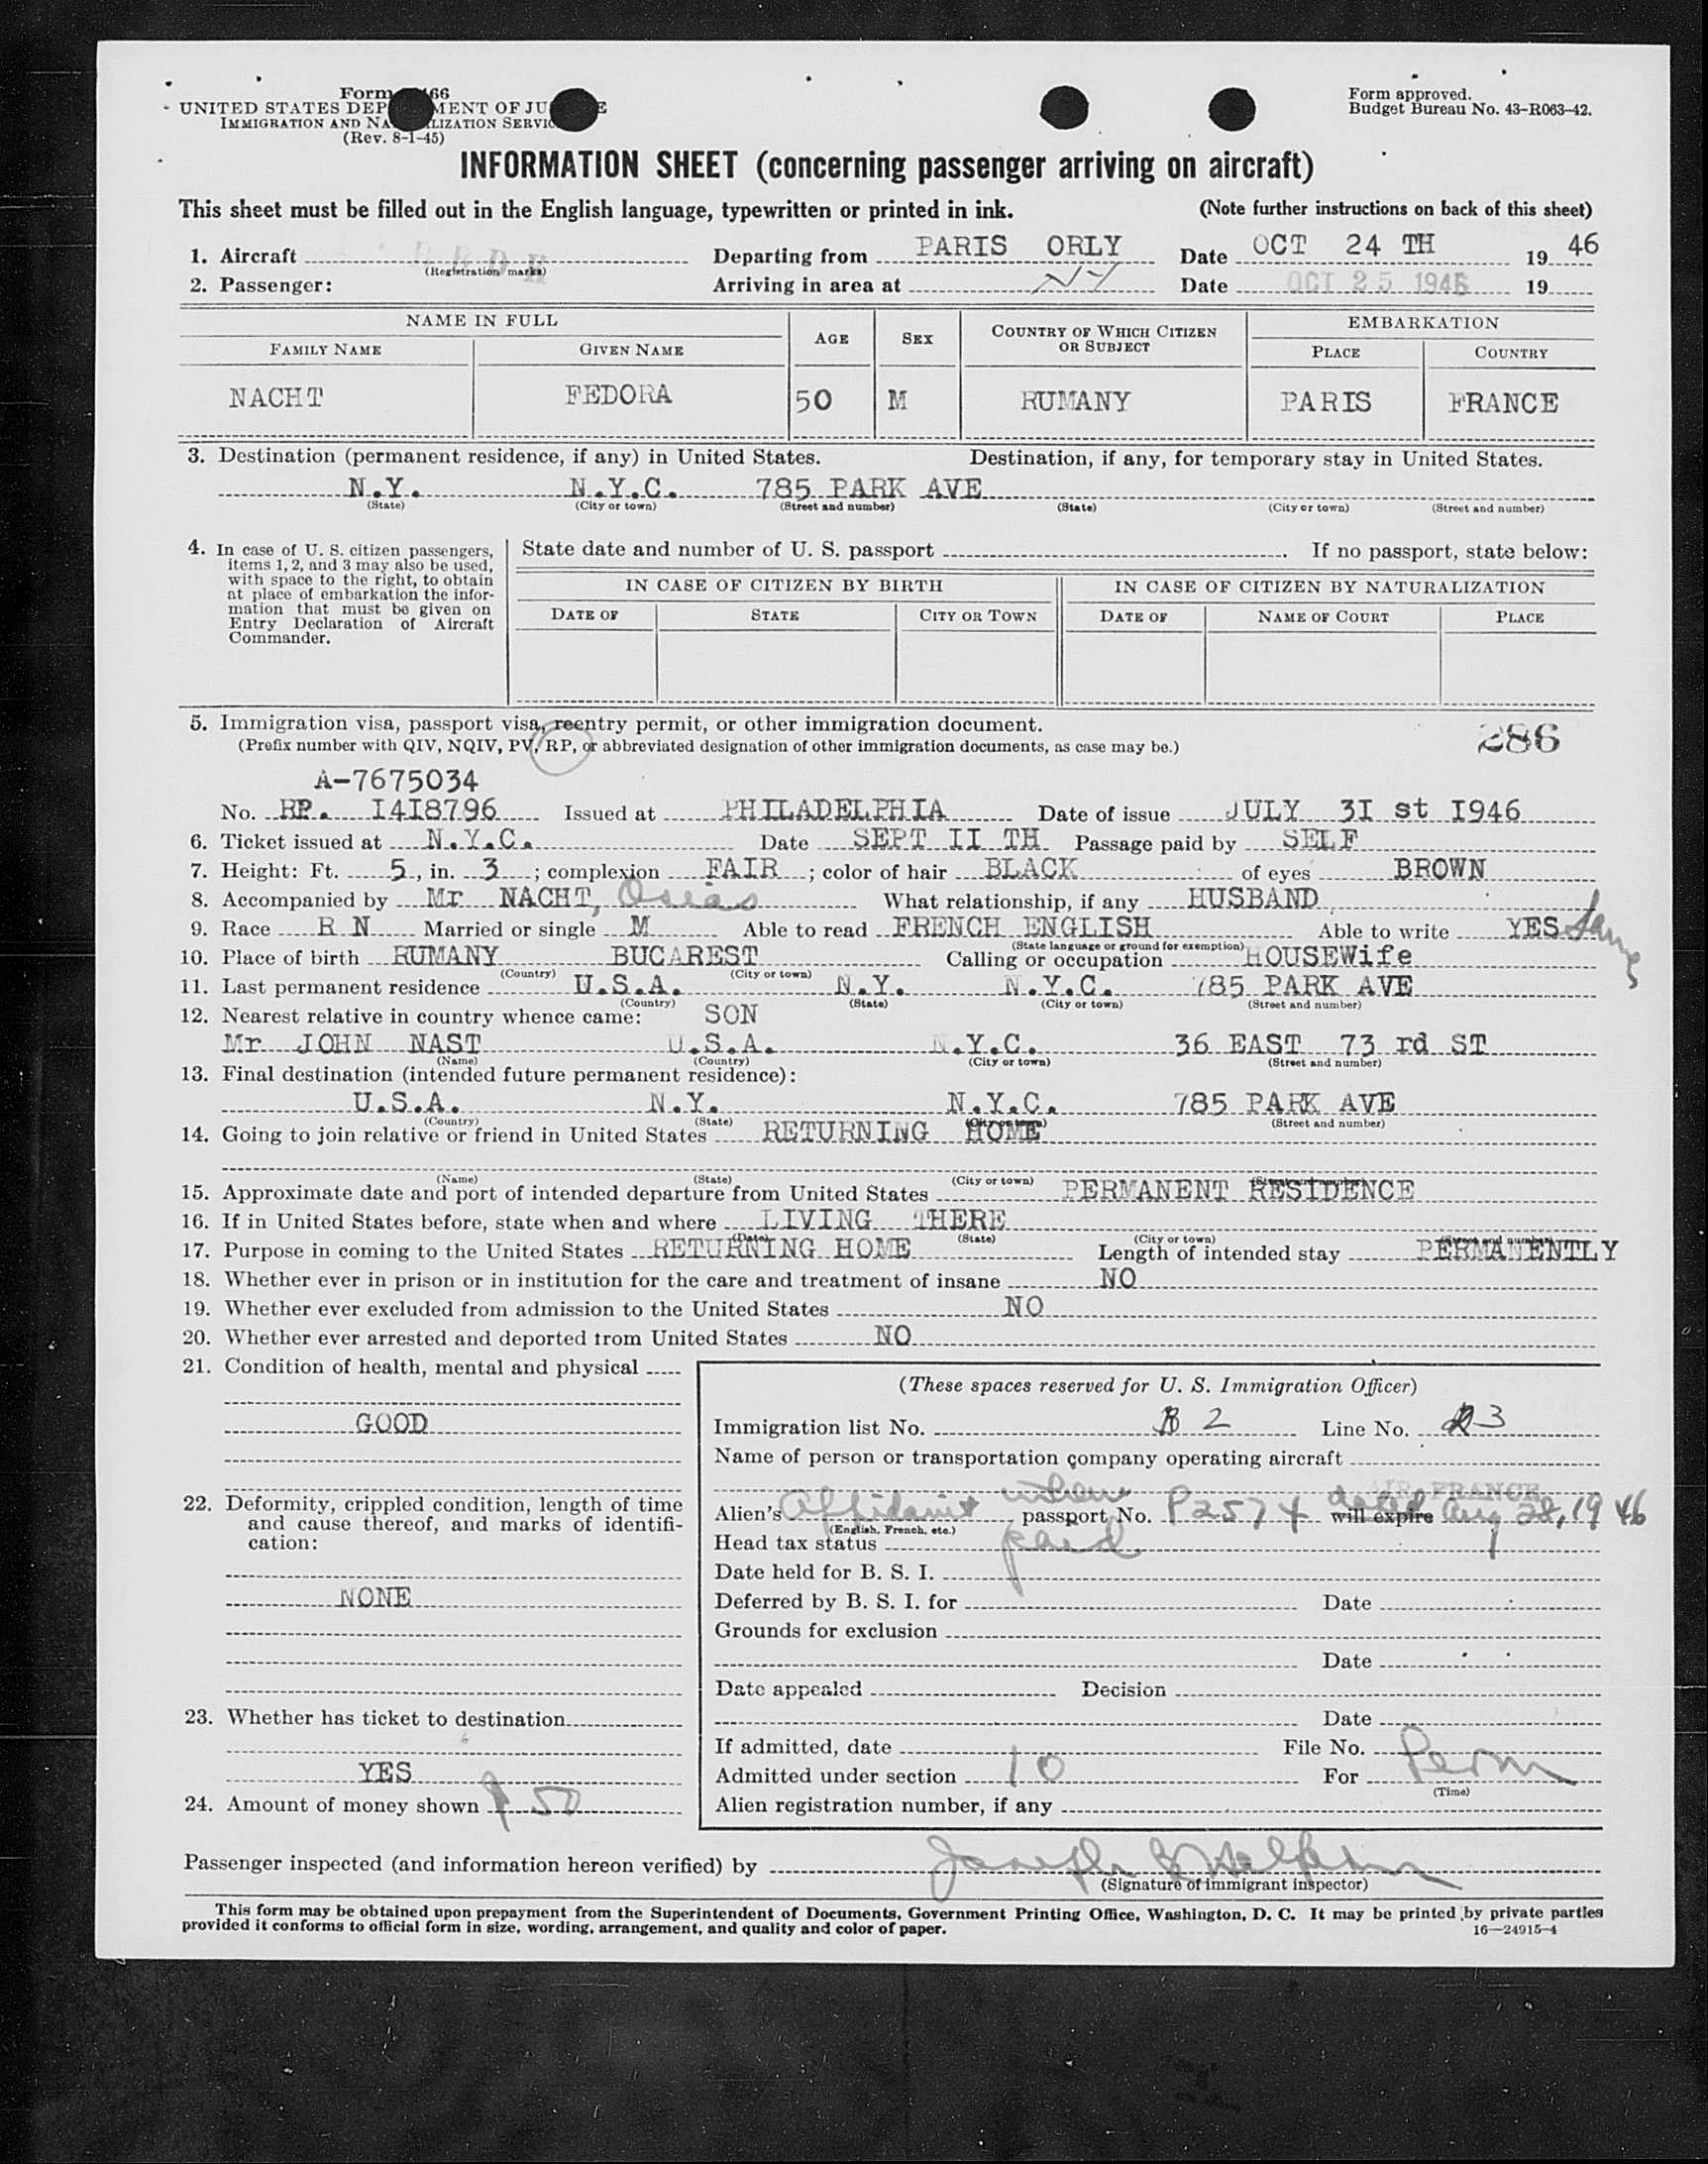 Form 66
UNITED STATES DEP MENT OF JU E
IMMIGRATION AND NA LIZATION SERVIC
(Rev. 8-1-45)
Form approved.
Budget Bureau No. 43-R063-42.
INFORMATION SHEET (concerning passenger arriving on aircraft)
This sheet must be filled out in the English language, typewritten or printed in ink. (Note further instructions on back of this sheet)
1. Aircraft (Registration marks) Departing from PARIS ORLY Date OCT 24 TH 19 46
2. Passenger: Arriving in area at NY Date OCT 25 1946 19
NAME IN FULL AGE SEX COUNTRY OF WHICH CITIZEN OR SUBJECT EMBARKATION
FAMILY NAME GIVEN NAME PLACE COUNTRY
NACHT FEDORA 50 M RUMANY PARIS FRANCE
3. Destination (permanent residence, if any) in United States. Destination, if any, for temporary stay in United States.
N.Y. N.Y.C. 785 PARK AVE
(State) (City or town) (Street and number) (State) (City or town) (Street and number)
4. In case of U. S. citizen passengers, items 1, 2, and 3 may also be used, with space to the right, to obtain at place of embarkation the information that must be given on Entry Declaration of Aircraft Commander.
State date and number of U. S. passport . If no passport, state below:
IN CASE OF CITIZEN BY BIRTH IN CASE OF CITIZEN BY NATURALIZATION
DATE OF STATE CITY OR TOWN DATE OF NAME OF COURT PLACE
5. Immigration visa, passport visa, reentry permit, or other immigration document.
(Prefix number with QIV, NQIV, PV, RP, or abbreviated designation of other immigration documents, as case may be.)
286
A-7675034
No. RP. I4I8796 Issued at PHILADELPHIA Date of issue JULY 3I st I946
6. Ticket issued at N.Y.C. Date SEPT II TH Passage paid by SELF
7. Height: Ft. 5, in. 3; complexion FAIR; color of hair BLACK of eyes BROWN
8. Accompanied by Mr NACHT, Osias What relationship, if any HUSBAND
9. Race R N Married or single M Able to read FRENCH ENGLISH Able to write YES Same
(State language or ground for exemption)
10. Place of birth RUMANY BUCAREST Calling or occupation HOUSEWife
(Country) (City or town)
11. Last permanent residence U.S.A. N.Y. N.Y.C. 785 PARK AVE
(Country) (State) (City or town) (Street and number)
12. Nearest relative in country whence came: SON
Mr JOHN NAST U.S.A. N.Y.C. 36 EAST 73 rd ST
(Name) (Country) (City or town) (Street and number)
13. Final destination (intended future permanent residence):
U.S.A. N.Y. N.Y.C. 785 PARK AVE
(Country) (State) (City or town) (Street and number)
14. Going to join relative or friend in United States RETURNING HOME
(Name) (State) (City or town) (Street and number)
15. Approximate date and port of intended departure from United States PERMANENT RESIDENCE
16. If in United States before, state when and where LIVING THERE
(Date) (State) (City or town) (Street and number)
17. Purpose in coming to the United States RETURNING HOME Length of intended stay PERMANENTLY
18. Whether ever in prison or in institution for the care and treatment of insane NO
19. Whether ever excluded from admission to the United States NO
20. Whether ever arrested and deported from United States NO
21. Condition of health, mental and physical
GOOD
22. Deformity, crippled condition, length of time and cause thereof, and marks of identification:
NONE
23. Whether has ticket to destination
YES
24. Amount of money shown $ 50
(These spaces reserved for U. S. Immigration Officer)
Immigration list No. B 2 Line No. 3
Name of person or transportation company operating aircraft
AIR FRANCE
Alien's Affidavit in lieu passport No. P2574 dated will expire Aug 28, 1946
(English, French, etc.)
Head tax status paid
Date held for B. S. I.
Deferred by B. S. I. for Date
Grounds for exclusion
Date
Date appealed Decision
Date
If admitted, date File No.
Admitted under section 10 For Perm
(Time)
Alien registration number, if any
Passenger inspected (and information hereon verified) by Joseph
(Signature of immigrant inspector)
This form may be obtained upon prepayment from the Superintendent of Documents, Government Printing Office, Washington, D. C. It may be printed by private parties
provided it conforms to official form in size, wording, arrangement, and quality and color of paper. 16—24915-4